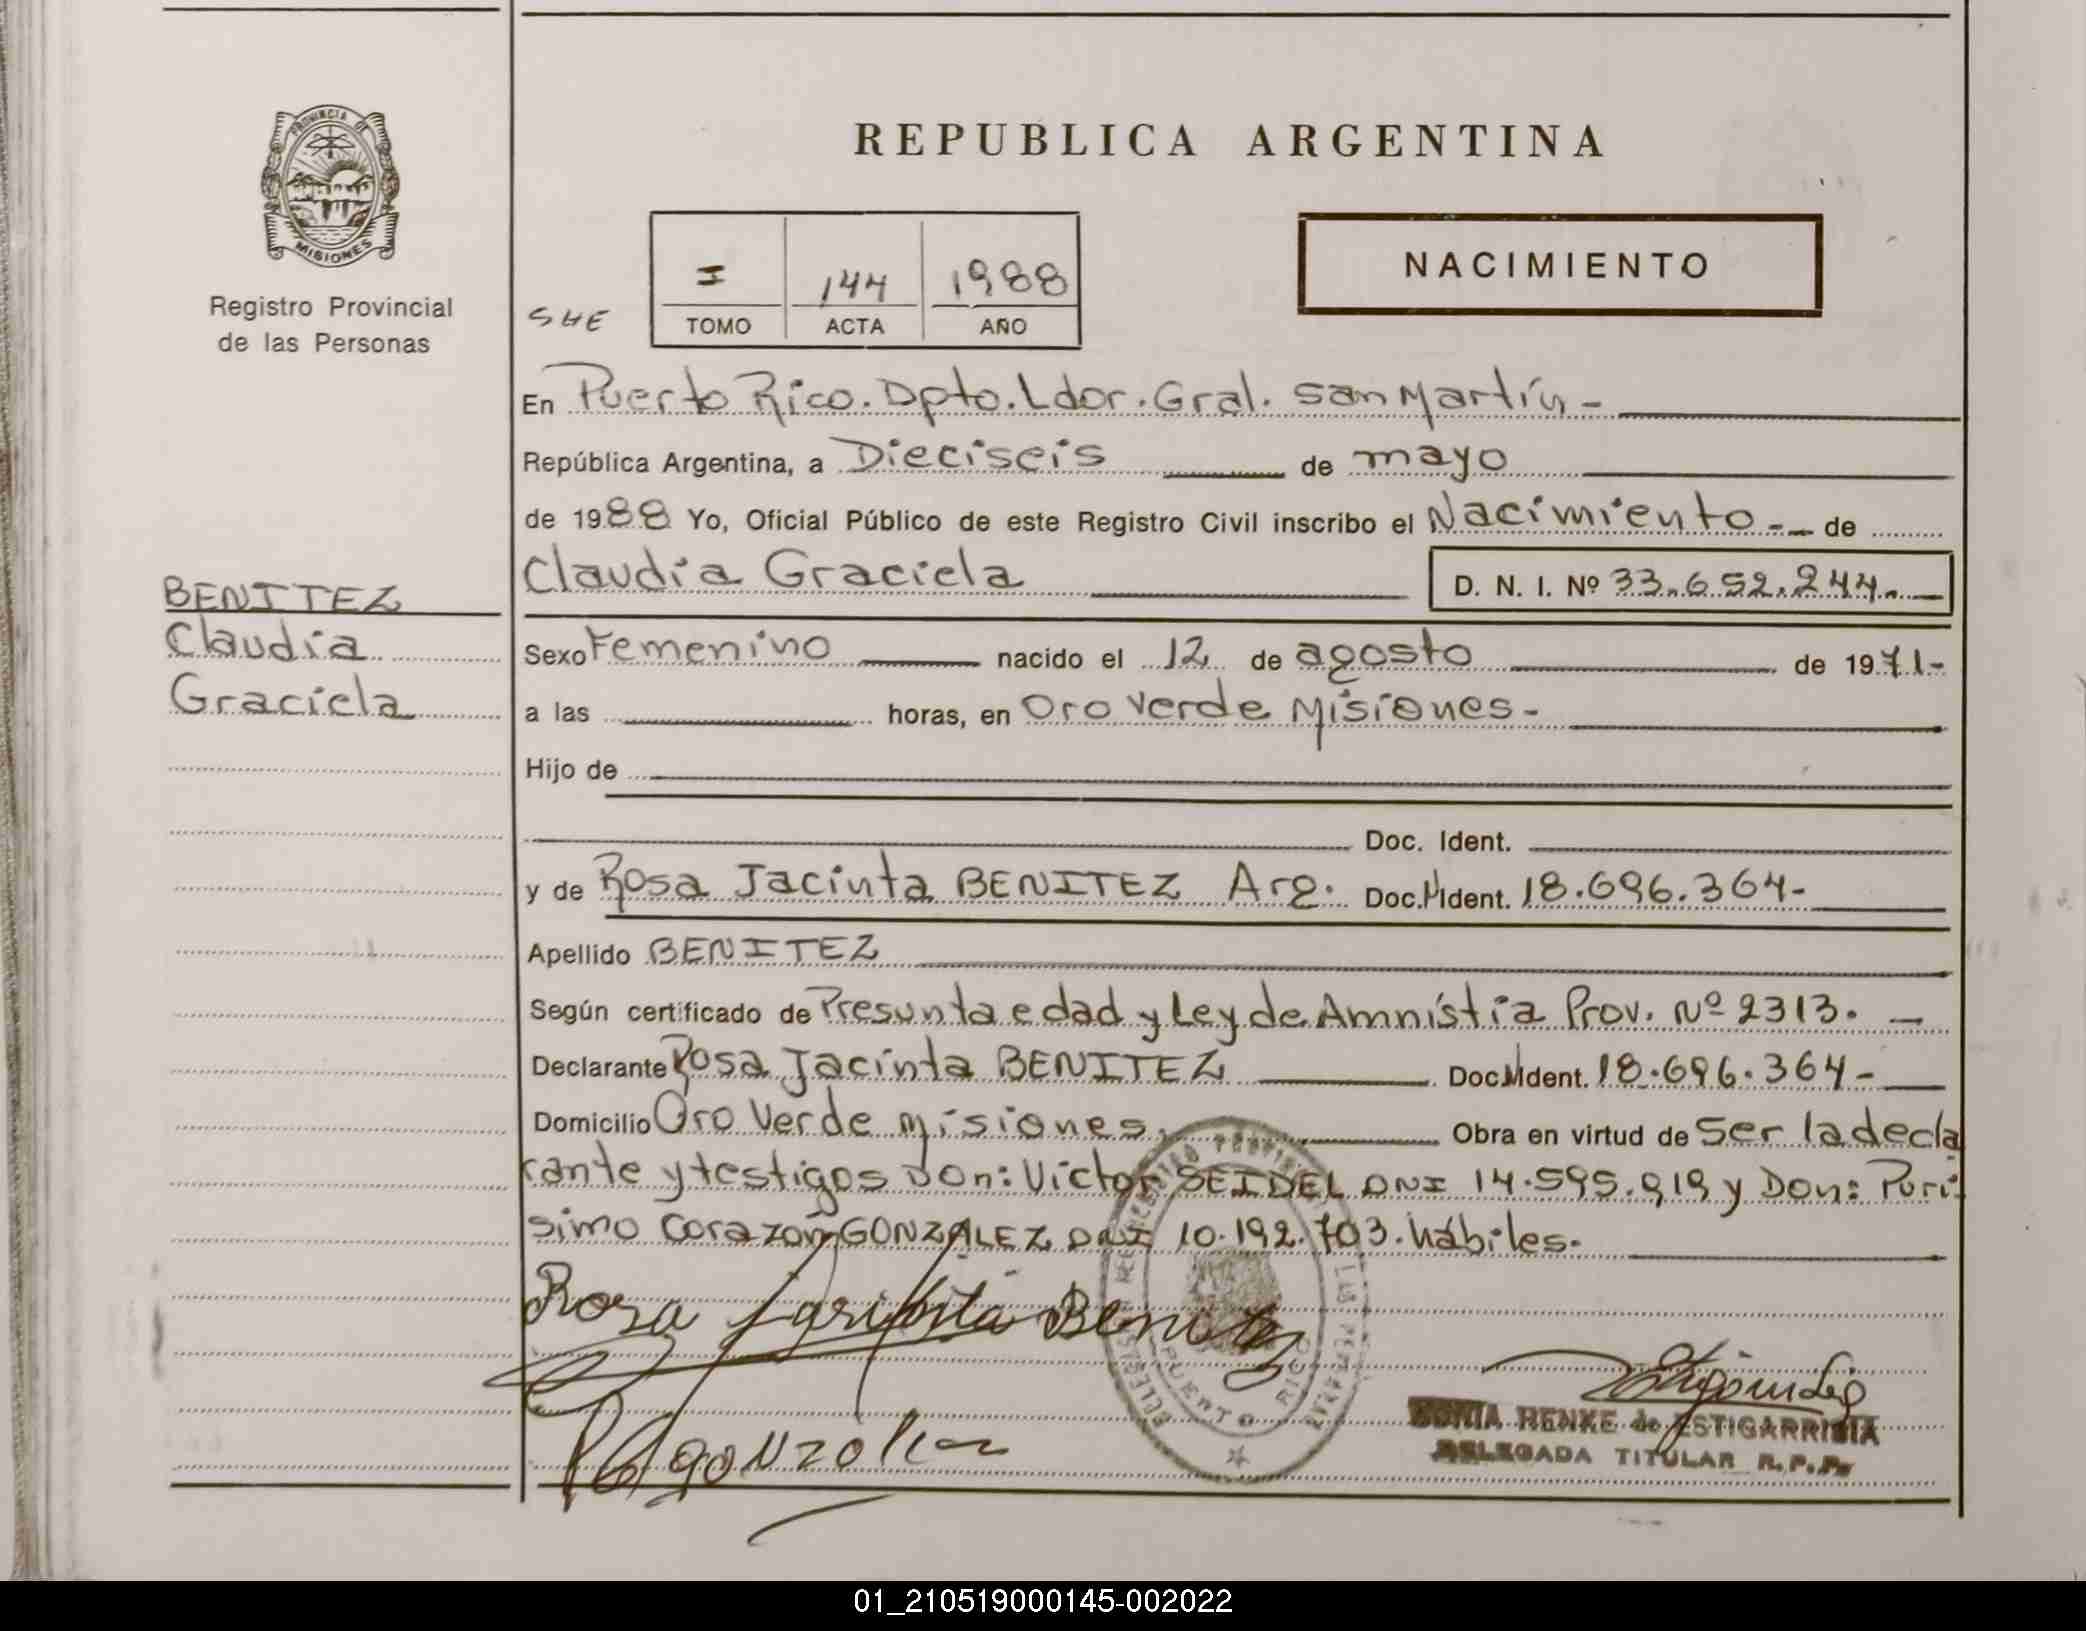 REPUBLICA ARGENTINA
PROVINCIA DE
MISIONES
Registro Provincial
de las Personas
NACIMIENTO
I 144 1988
TOMO ACTA AÑO
En Puerto Rico. Dpto. Ldor. Gral. San Martín -
República Argentina, a Dieciseis de mayo
de 1988 Yo, Oficial Público de este Registro Civil inscribo el Nacimiento.- de
BENITEZ
Claudia
Graciela
Claudia Graciela D. N. I. Nº 33.652.244.
Sexo Femenino nacido el 12 de agosto de 1971-
a las horas, en Oro Verde Misiones-
Hijo de
Doc. Ident.
y de Rosa Jacinta BENITEZ Arg. Doc. Ident. 18.696.364-
Apellido BENITEZ
Según certificado de Presunta edad y Ley de Amnistia Prov. Nº 2313.
Declarante Rosa Jacinta BENITEZ Doc. Ident. 18.696.364-
Domicilio Oro Verde Misiones. Obra en virtud de Ser la decla
rante y testigos Don: Victor SEIDEL DNI 14.595.919 y Don: Puri
simo Corazon GONZALEZ DNI 10.192.703. hábiles.
Rosa Benitez
PUERTO RICO
SONIA RENKE de ESTIGARRIBIA
DELEGADA TITULAR R.P.P.
01_210519000145-002022